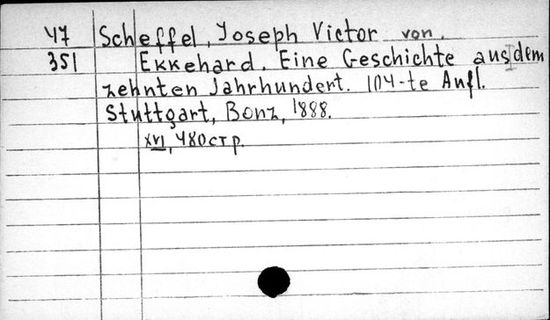 47 Scheffel, Joseph Victor von.
351 Ekkehard. Eine Geschichte aus dem
zehnten Jahrhundert. 104-te Aufl.
Stuttgart, Bonz, 1888.
XVI, 480 стр.